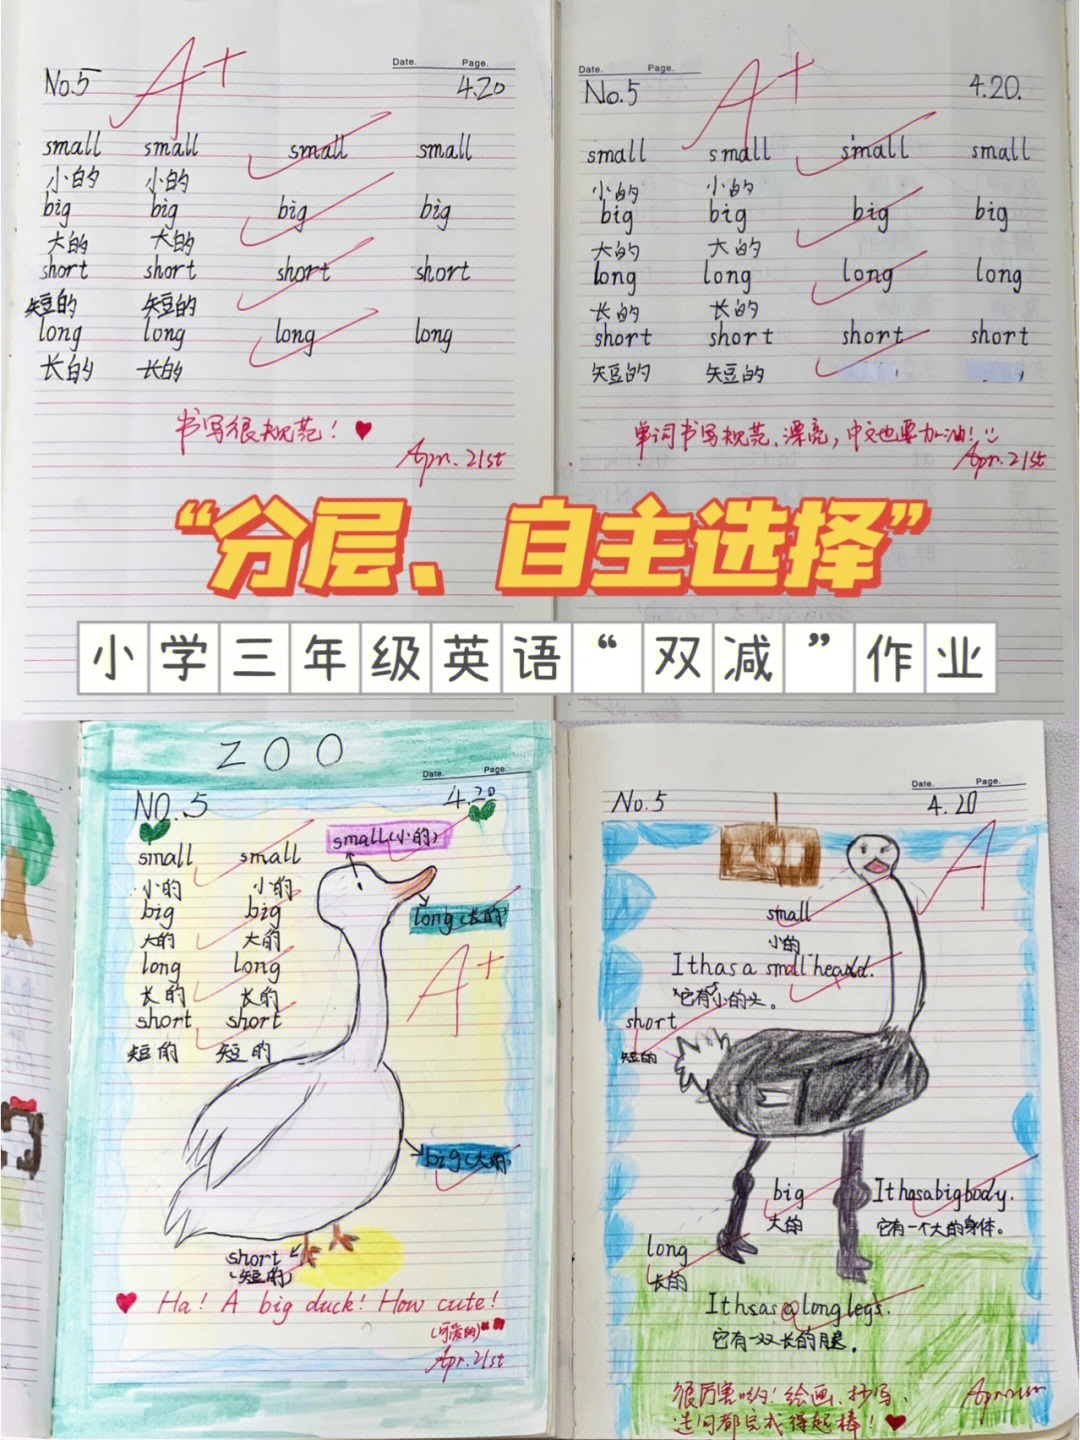 Date. Page.
No.5 4.20
A+
small small small small
小的 小的
big big big big
大的 大的
short short short short
短的 短的
long long long long
长的 长的
书写很规范！
Apr. 21st
Date. Page.
No.5 4.20.
A+
small small small small
小的 小的
big big big big
大的 大的
long long long long
长的 长的
short short short short
短的 短的
单词书写规范、漂亮，中文也要加油！
Apr. 21st
“分层、自主选择”
小学三年级英语“双减”作业
ZOO
Date. Page.
NO.5 4.20
small(小的)
small small
小的 小的
big big
大的 大的
long long
长的 长的
short short
短的 短的
long(长的)
A+
big(大的)
short
(短的)
Ha! A big duck! How cute!
(可爱的)
Apr. 21st
Date. Page.
No.5 4.20
A
small
小的
It has a small head.
它有小的头。
short
短的
big
大的
It has a big body.
它有一个大的身体。
long
长的
It hsas a long legs.
它有一双长的腿。
很厉害哟！绘画、抄写、
造句都完成得超棒！